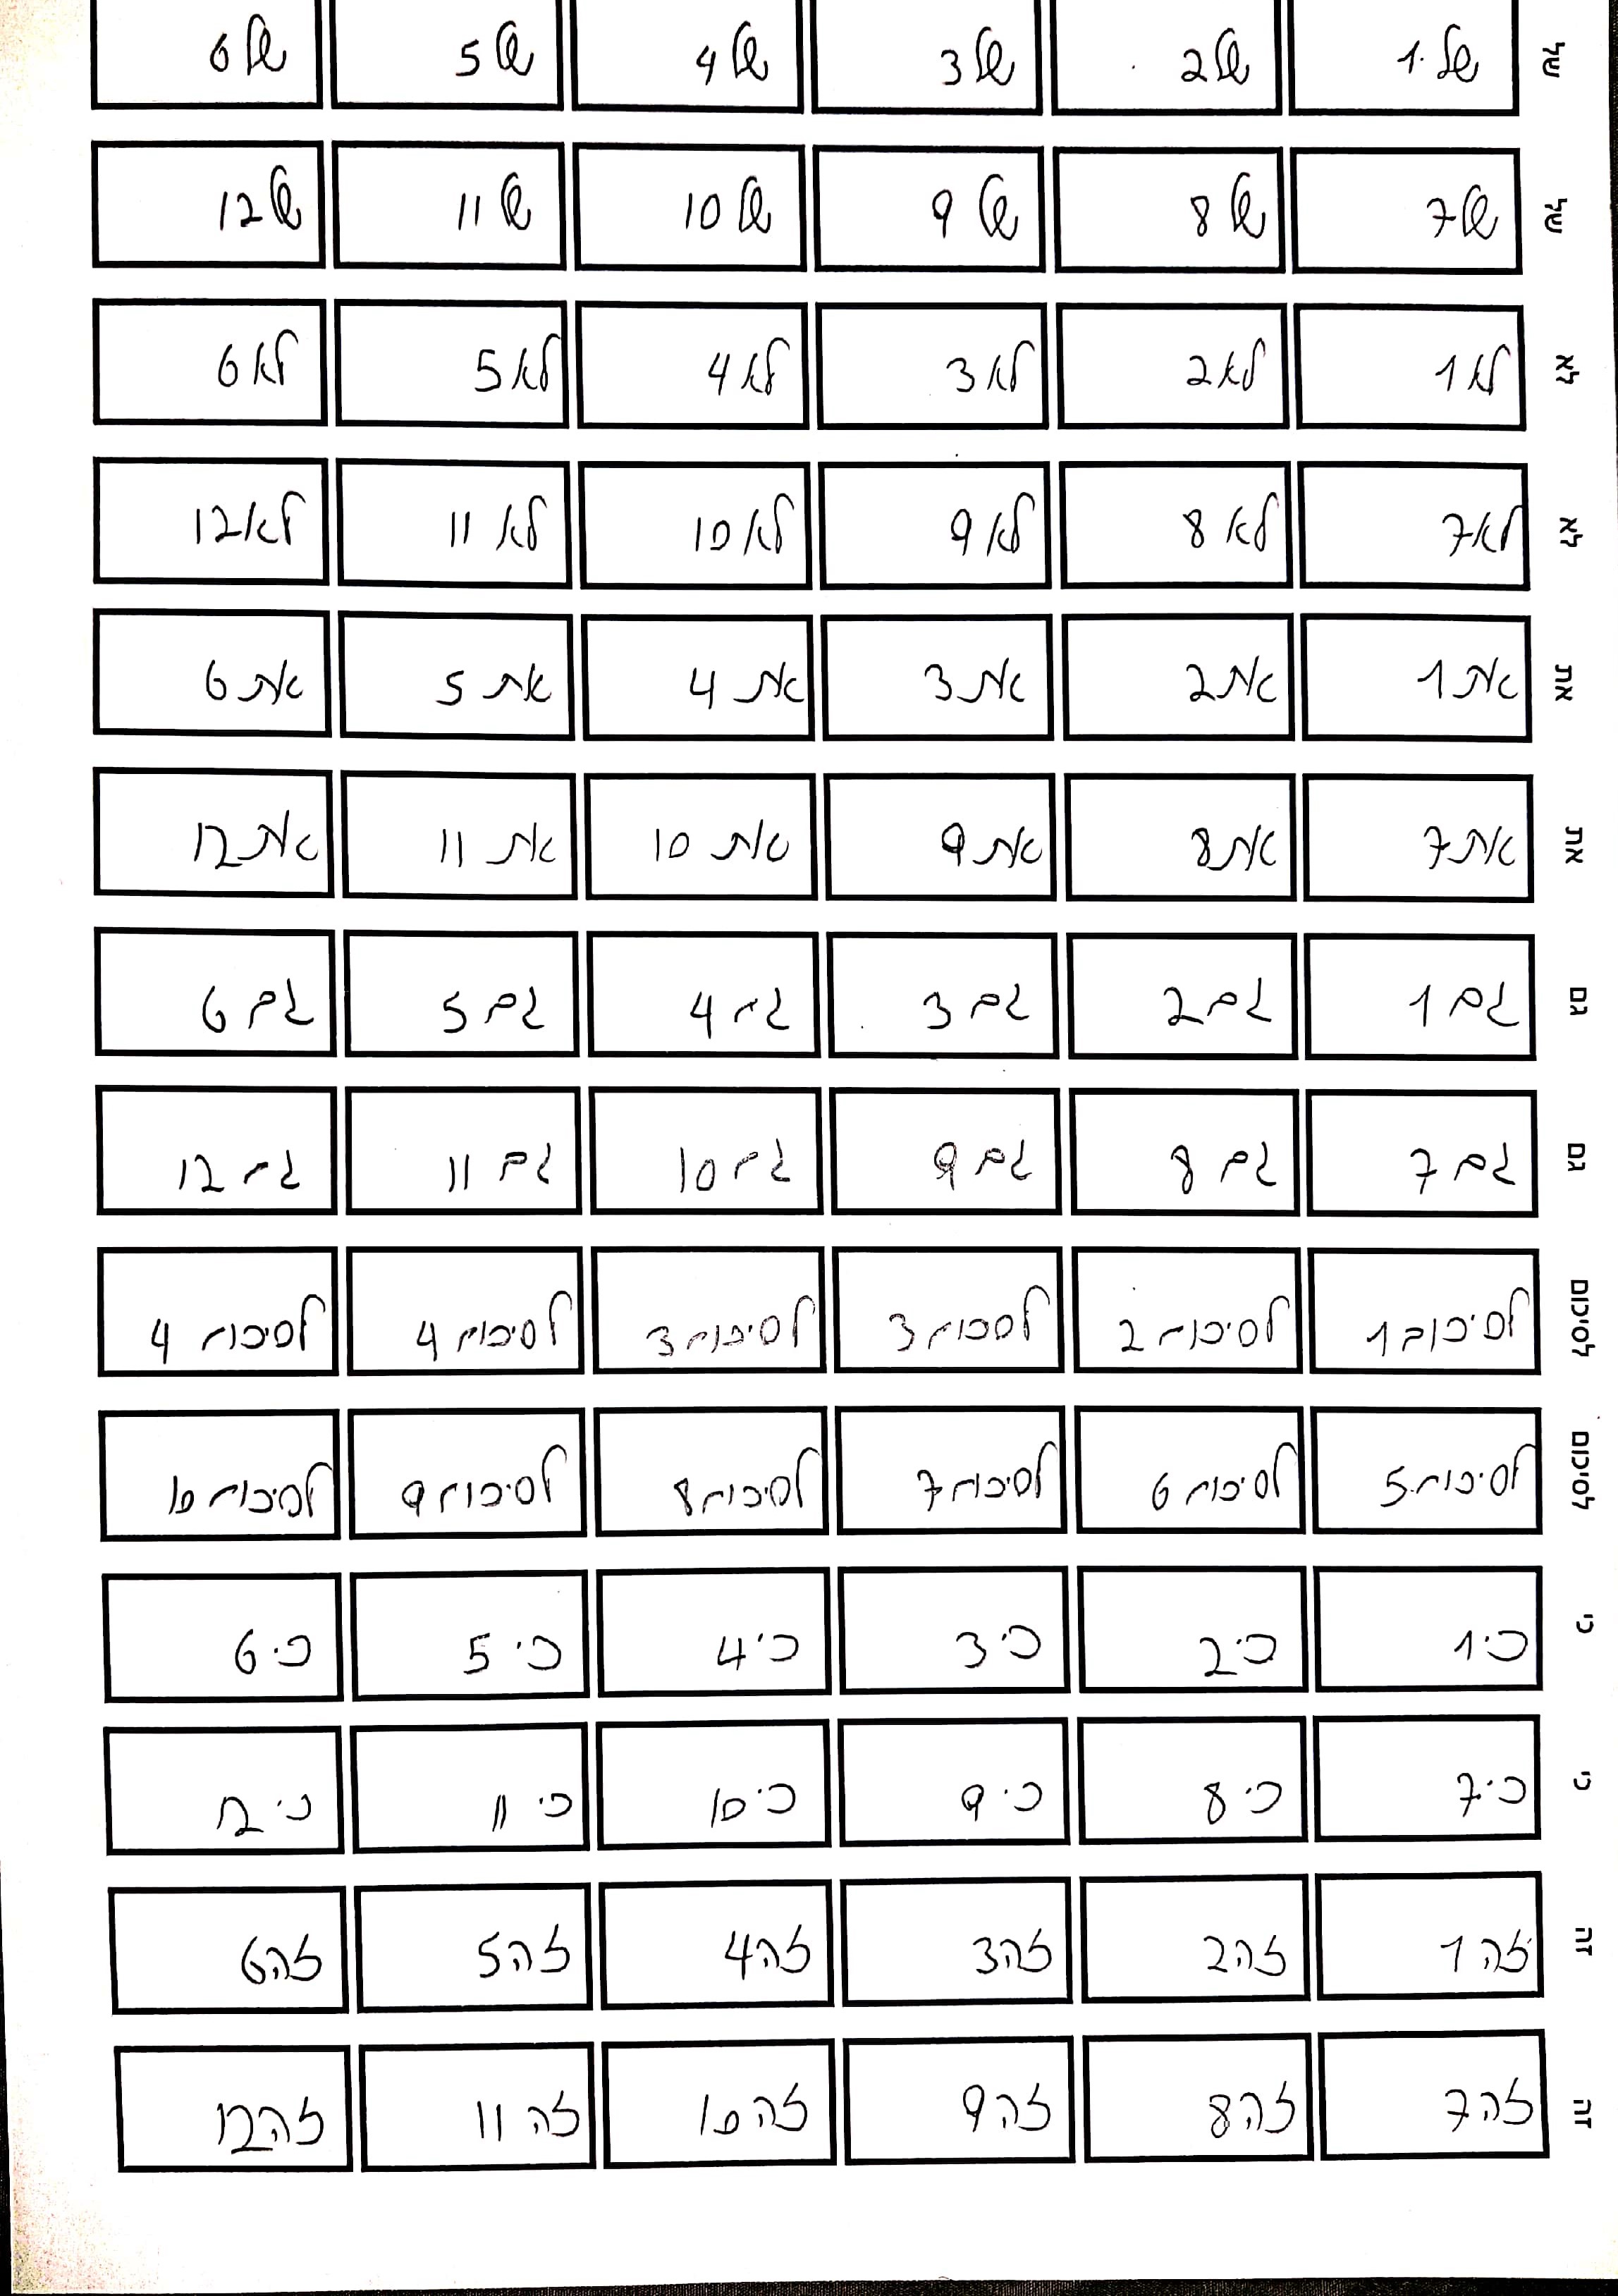 של של 1. של 2 של 3 של 4 של 5 של 6
של של 7 של 8 של 9 של 10 של 11 של 12
לא לא 1 לא 2 לא 3 לא 4 לא 5 לא 6
לא לא 7 לא 8 לא 9 לא 10 לא 11 לא 12
את את 1 את 2 את 3 את 4 את 5 את 6
את את 7 את 8 את 9 את 10 את 11 את 12
גם גם 1 גם 2 גם 3 גם 4 גם 5 גם 6
גם גם 7 גם 8 גם 9 גם 10 גם 11 גם 12
לסיכום לסיכום 1 לסיכום 2 לסכום 3 לסיכום 3 לסיכום 4 לסיכום 4
לסיכום לסיכום 5 לסיכום 6 לסיכום 7 לסיכום 8 לסיכום 9 לסיכום 10
כי כי 1 כי 2 כי 3 כי 4 כי 5 כי 6
כי כי 7 כי 8 כי 9 כי 10 כי 11 כי 12
זה זה 1 זה 2 זה 3 זה 4 זה 5 זה 6
זה זה 7 זה 8 זה 9 זה 10 זה 11 זה 12